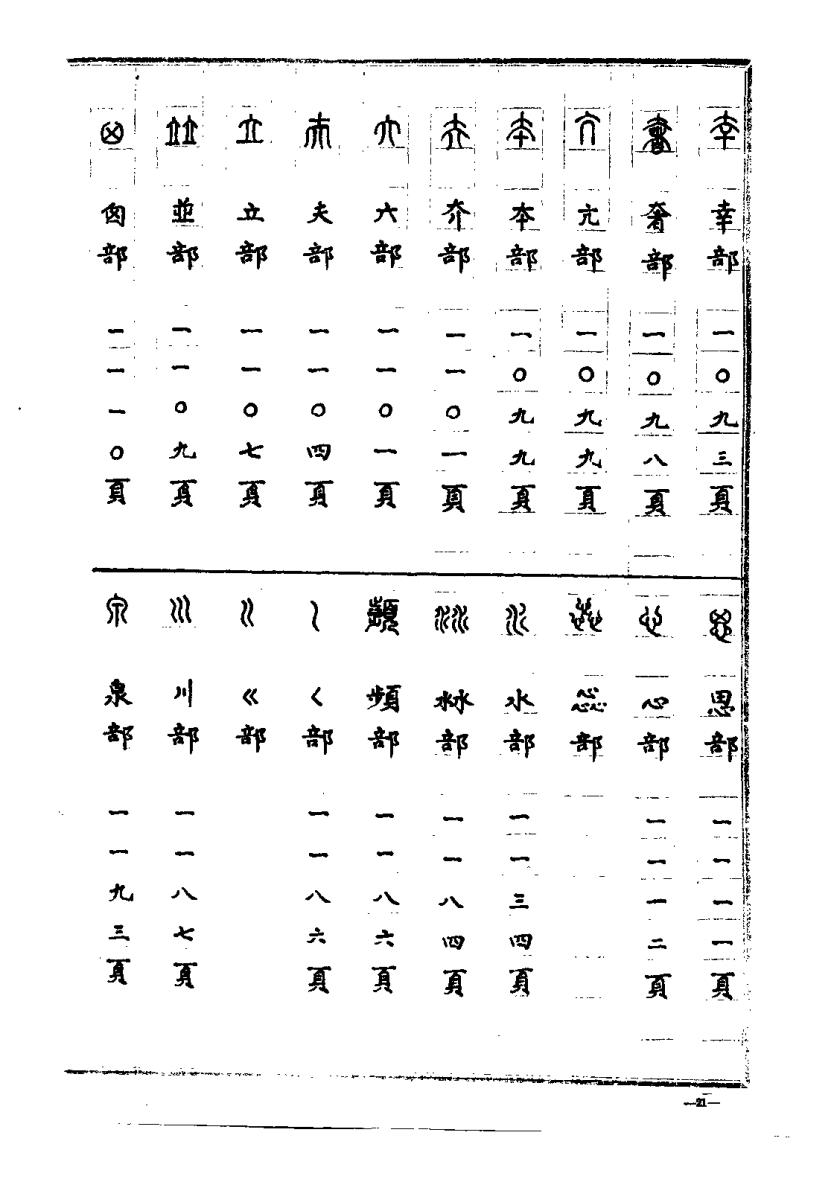 幸部一〇九三頁
奢部一〇九八頁
亢部一〇九九頁
夲部一〇九九頁
夰部一一〇一頁
六部一一〇一頁
夫部一一〇四頁
立部一一〇七頁
並部一一〇九頁
囟部一一一〇頁
思部一一一一頁
心部一一一二頁
惢部
水部一一三四頁
沝部一一八四頁
頻部一一八六頁
𡿨部一一八六頁
巜部
川部一一八七頁
泉部一一九三頁
—21—